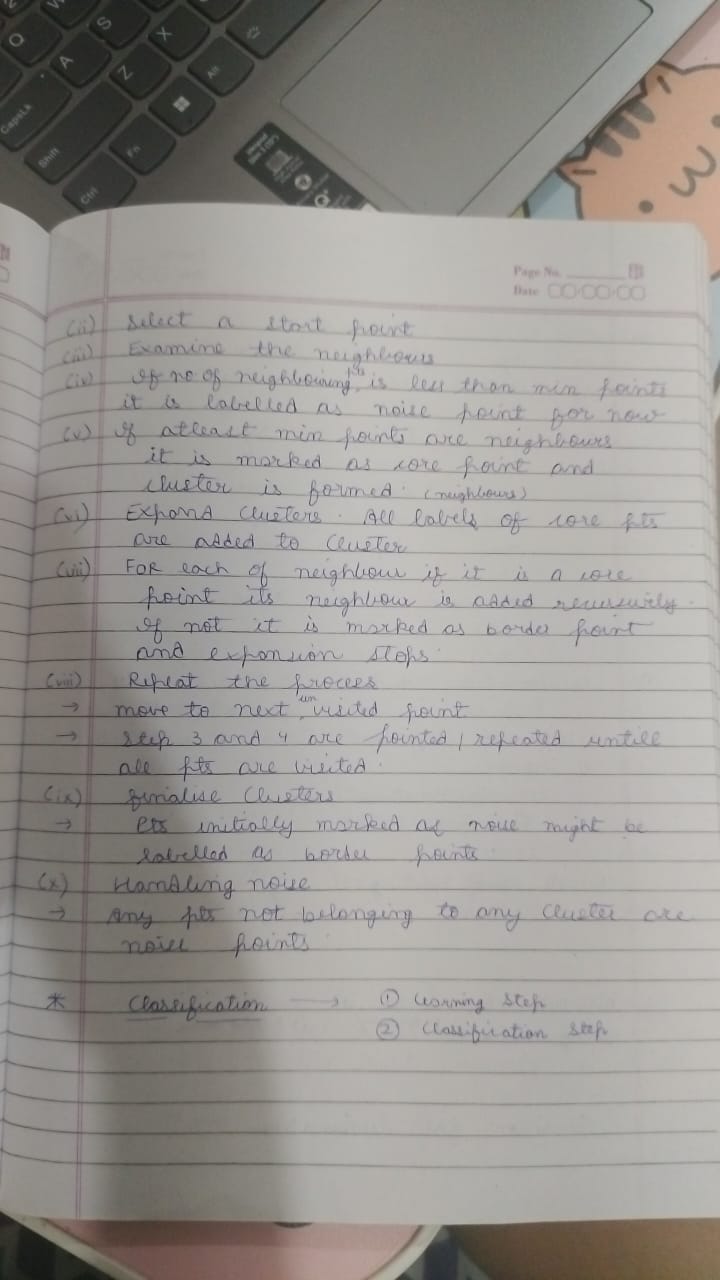 Q
A
S
X
Z
CapsLk
Shift
Fn
Alt
Ctrl
Page No.
Date
(ii) Select a start point
(iii) Examine the neighbours
(iv) If no of neighbouring pts is less than min points
it is labelled as noise point for now
(v) If atleast min points are neighbours
it is marked as core point and
cluster is formed. (neighbours)
(vi) Expand Clusters. All labels of core pts
are added to Cluster
(vii) FOR each of neighbour if it is a core
point its neighbour is added recursively.
If not it is marked as border point
and expansion stops.
(viii) Repeat the process
→ move to next unvisited point
→ step 3 and 4 are pointed / repeated untill
all pts are visited.
(ix) Finalise Clusters
→ Pts initially marked as noise might be
labelled as border points.
(x) Handling noise
→ Any pts not belonging to any Cluster are
noise points.
* Classification → ① Learning Step
② Classification Step